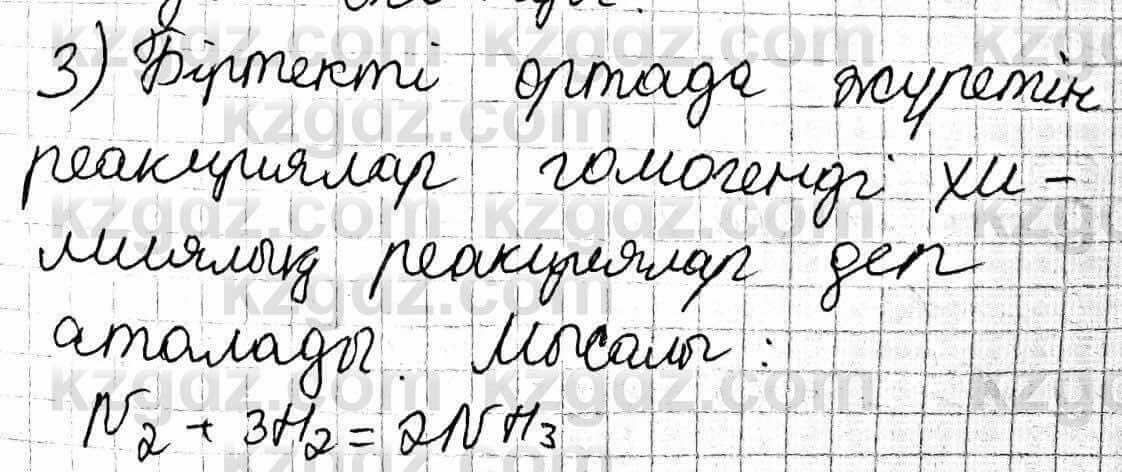 3) Біртекті ортада жүретін
реакциялар гомогенді хи-
миялық реакциялар деп
аталады. Мысалы:
N₂ + 3H₂ = 2NH₃